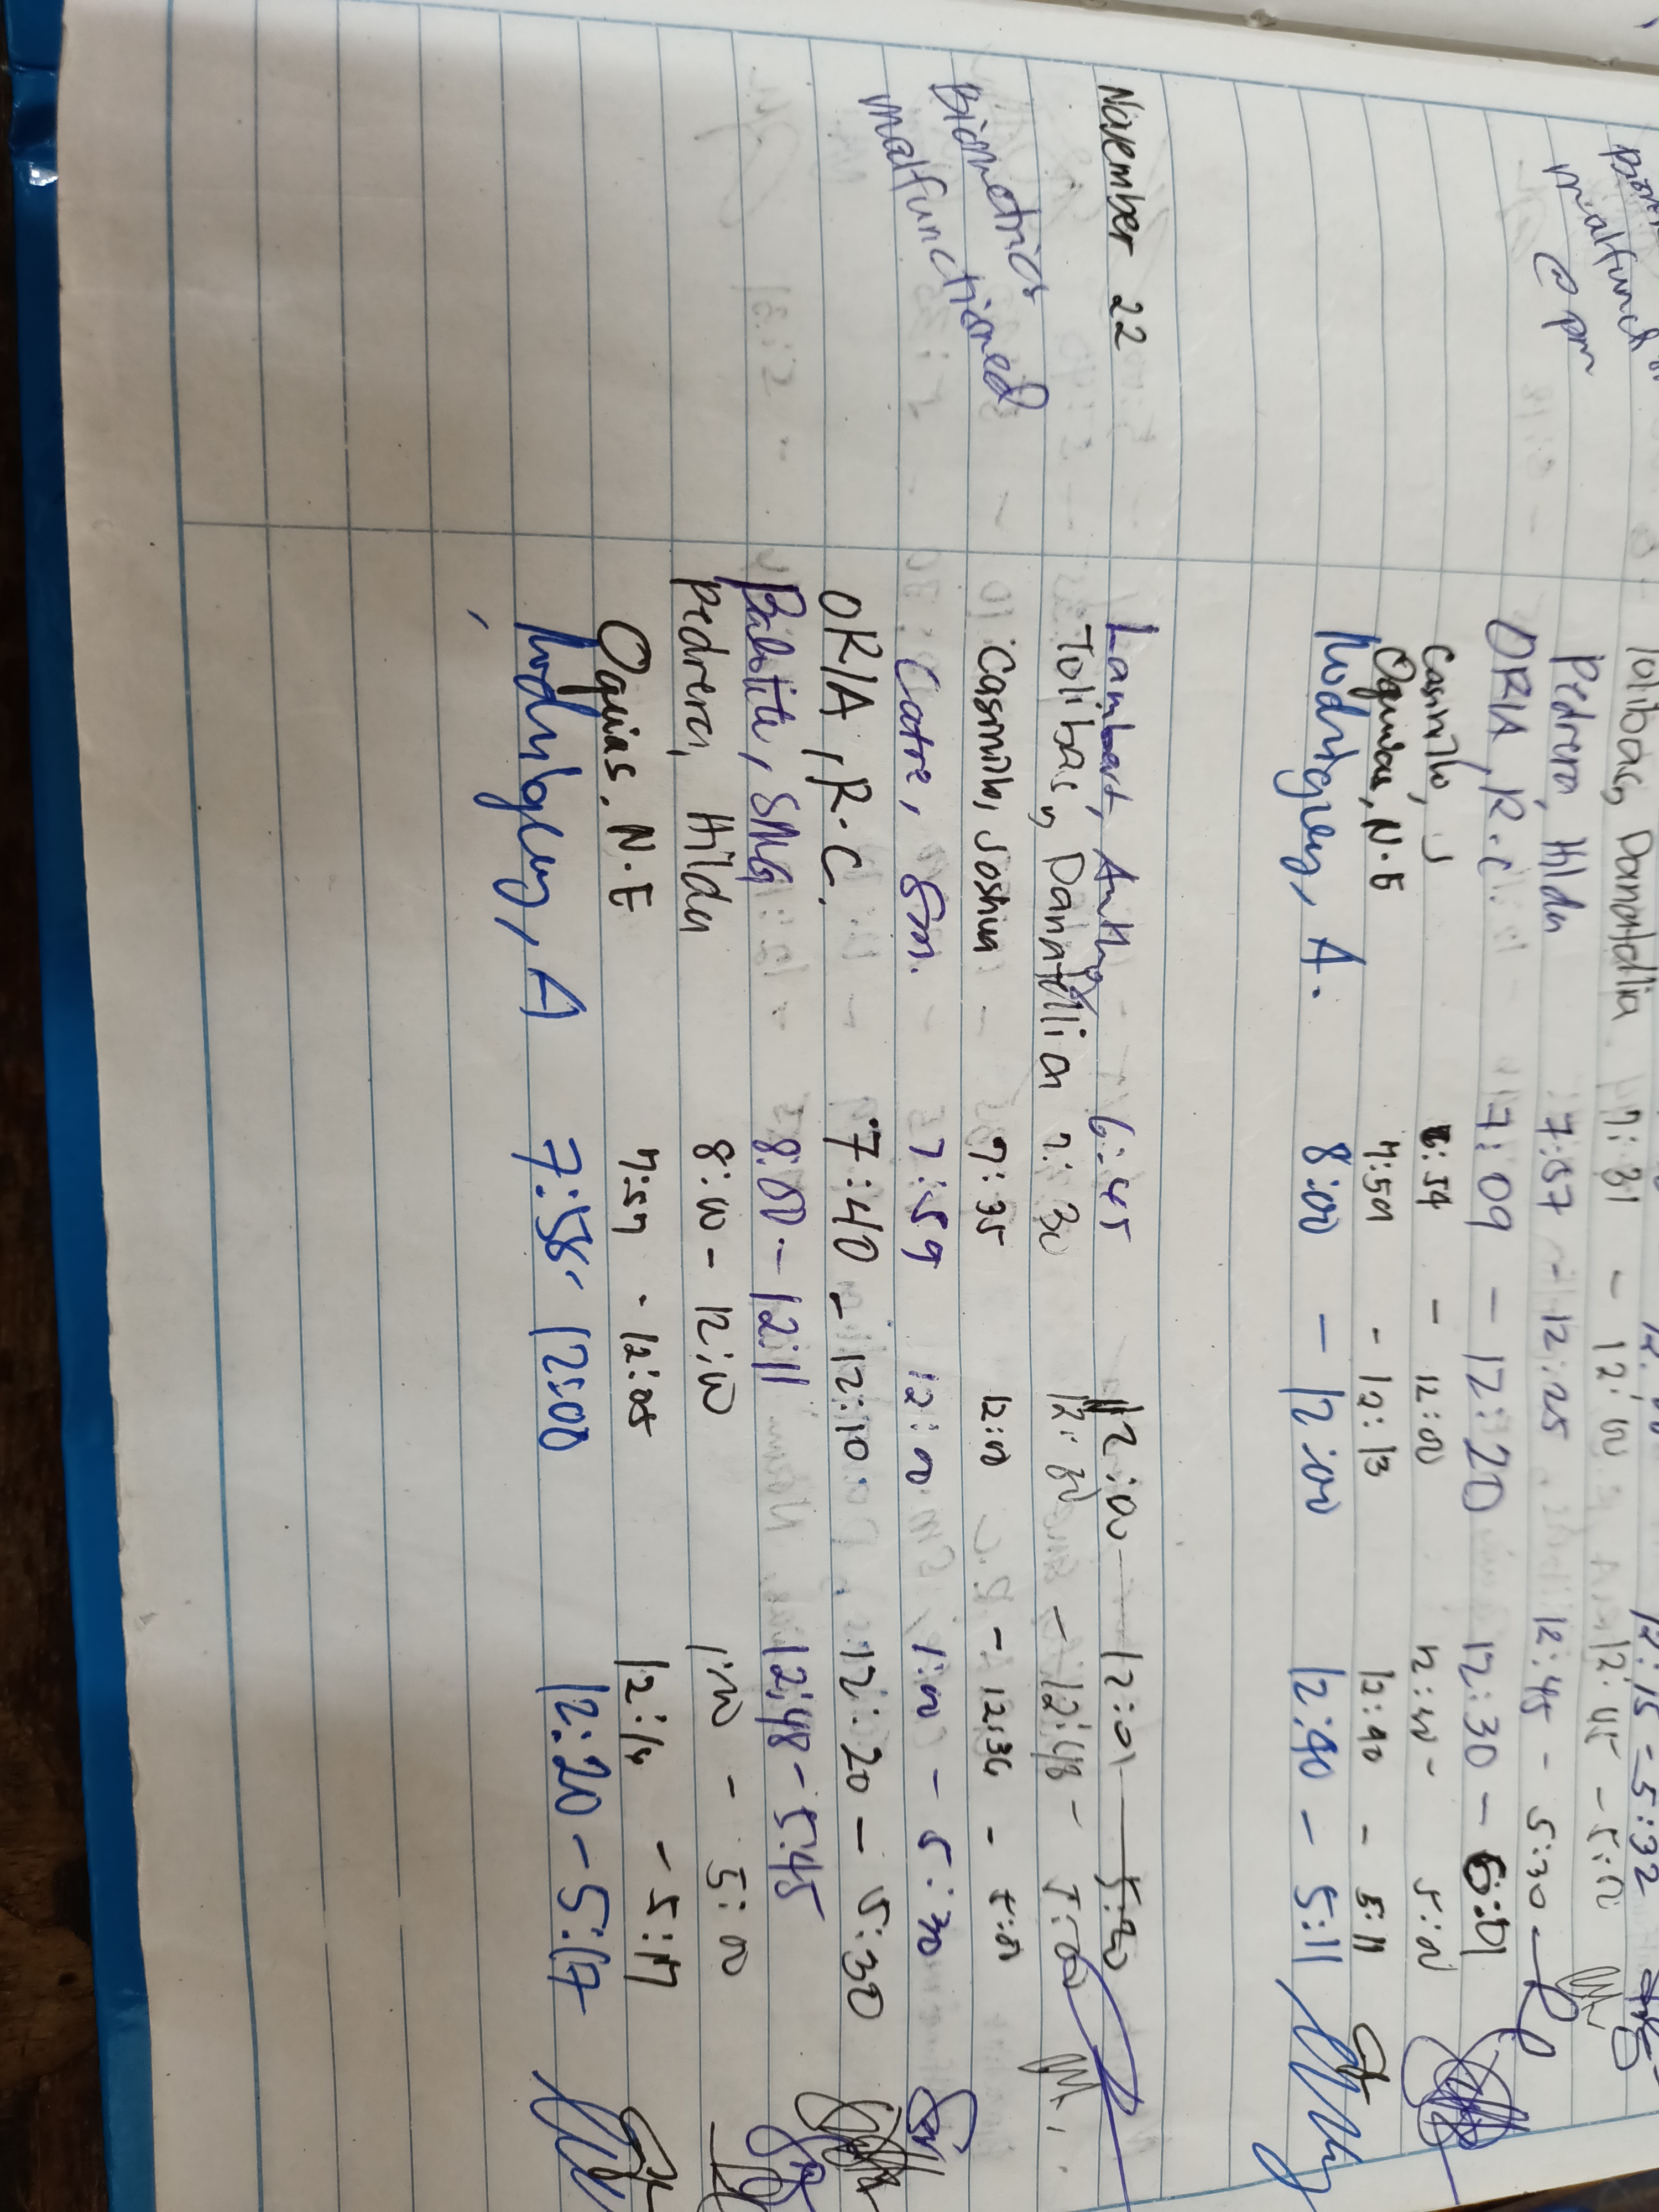 malfunct
@ pm
Tolibas, Danatellia 7:31 - 12:00 12:45 - 5:00
Pedrera, Hilda 7:57 - 12:25 12:45 - 5:30
ORIA, R.C. 7:09 - 12:20 12:30 -
Casmillo, J :54 - 12:00 12:30 - 5:00
Oquias, N.E 7:59 - 12:13 12:40 - 5:11
Rodriguez, A. 8:00 - 12:00 12:40 - 5:11
November 22 Lambert, Anthony 6:45 12:00 12:01
Tolibas, Danatellia 7:30 12:00 - 12:48 - 5:00
Biometrics Casmillo, Joshua 7:35 12:00 - 12:36 - 5:01
malfunctioned Catre, Sm. 7:59 12:00 1:00 - 5:30
ORIA, R.C. 7:40 - 12:10 12:20 - 5:30
Babotite, SMG 8:00 - 12:11 12:48 - 5:45
Pedrera, Hilda 8:00 - 12:00 1:00 - 5:00
Oquias, N.E 7:57 - 12:05 12:14 - 5:17
Rodriguez, A 7:58 12:00 12:20 - 5:17